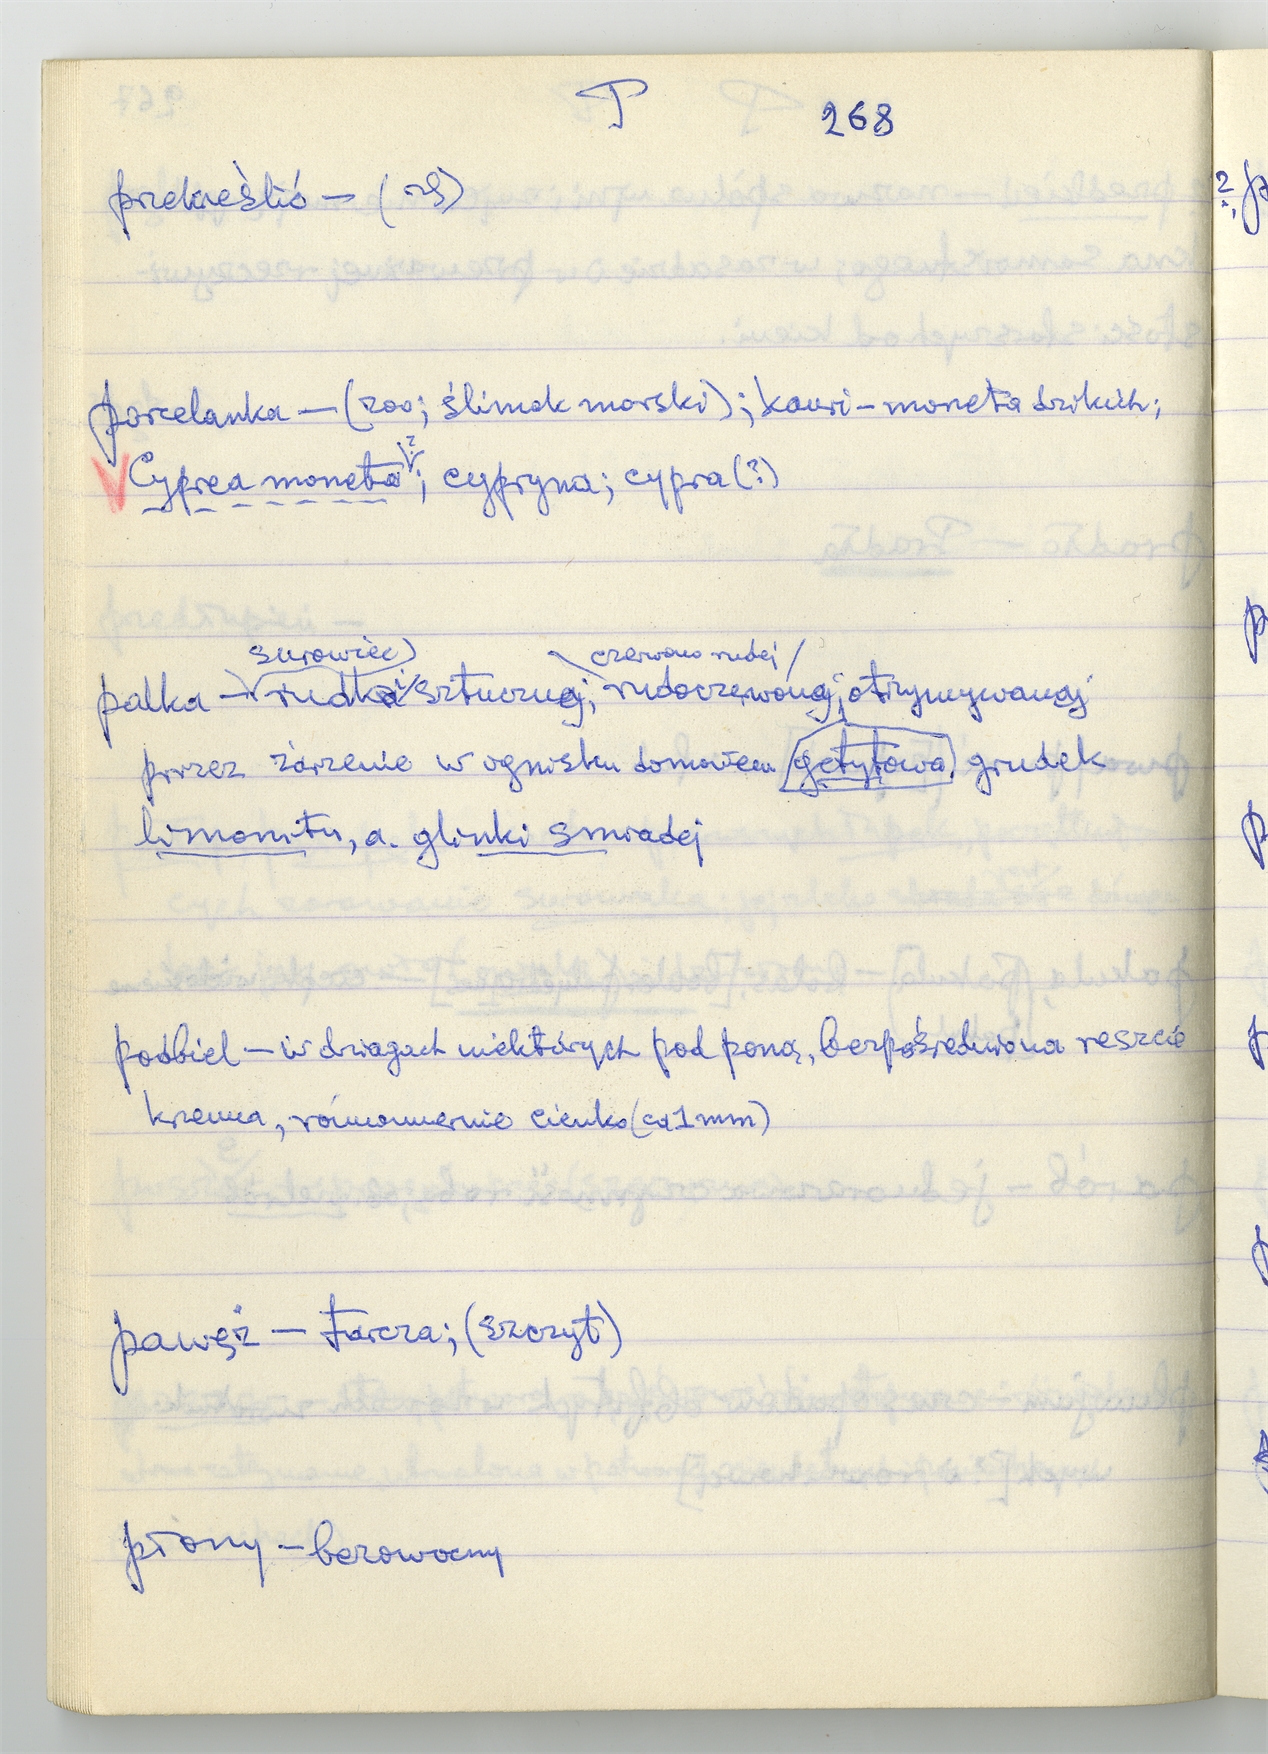 P 268
przekreślić — (rs)
porcelanka — (zoo; ślimak morski); kauri – moneta dzikich;
Cyprea moneta ?; cypryna; cypra (?)
surowiec czerwono rudej
palka — rudka sztucznej; rudoczerwonej, otrzymywanej
przez żarzenie w ognisku domowem getytowa, grudek
limonitu, a. glinki smradej
podbiel — w dziagach niektórych pod poną, bezpośredniona reszcie
krzemia, równomiernie cienko (ca 1 mm)
pawęż — tarcza; (szczyt)
płony — bezowocny